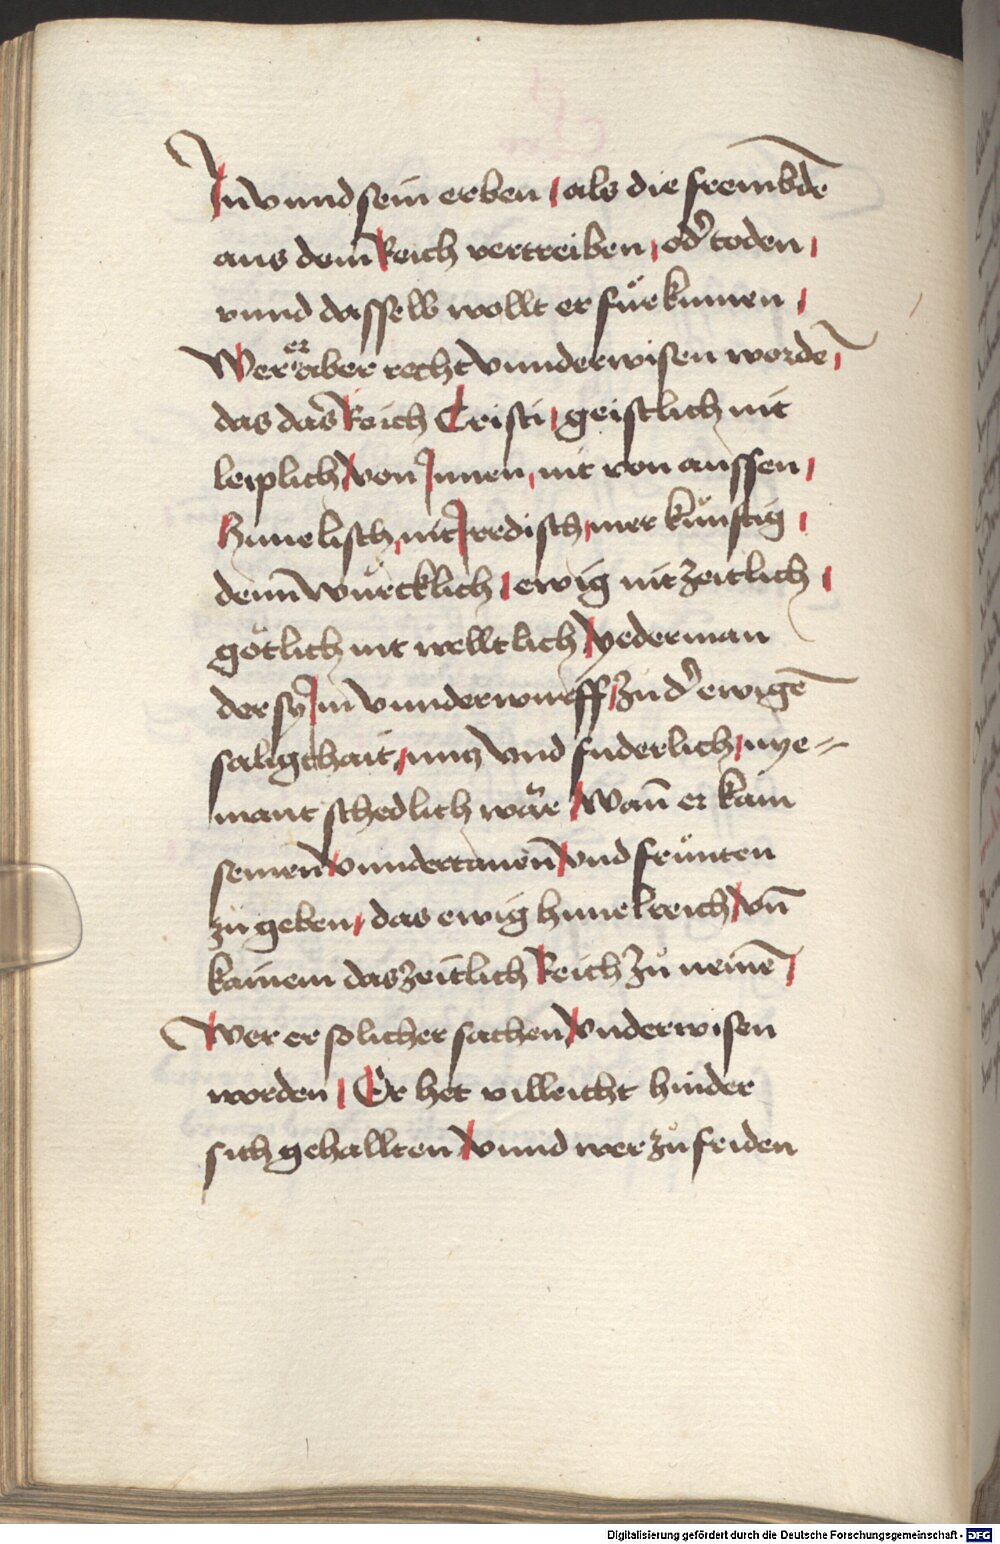 In vnnd sein erben / als die frembdē
aus dem Reich vertreiben / od' toden /
vnnd dasselb wollt er fuͤrkumen /
Wer er aber recht vnnderwisen wordē /
das das Reich Cristi / geistlich nit
leiplich / von Innen / nit von aussen /
Himelisch / nit Iredisch / mer kuͤnftig /
denn wuͤrcklich / ewig nit zeitlich /
goͤtlich nit welltlich / yederman
der sy Im vnnderwurff / zu d' ewigē
saligkhait / nutz vnd fuderlich / nye=
mant schedlich waͤr / Wañ er kam
seinen vnndertanen vnd fruͤnten
zu geben / das ewig himelreich / vn̄
kainem das zeitlich Reich zuͦ nemē /
Wer er solicher sachen vnderwisen
worden / Er het villeicht hinder
sich gehallten / vnnd wer zuͦ friden
Digitalisierung gefördert durch die Deutsche Forschungsgemeinschaft - DFG